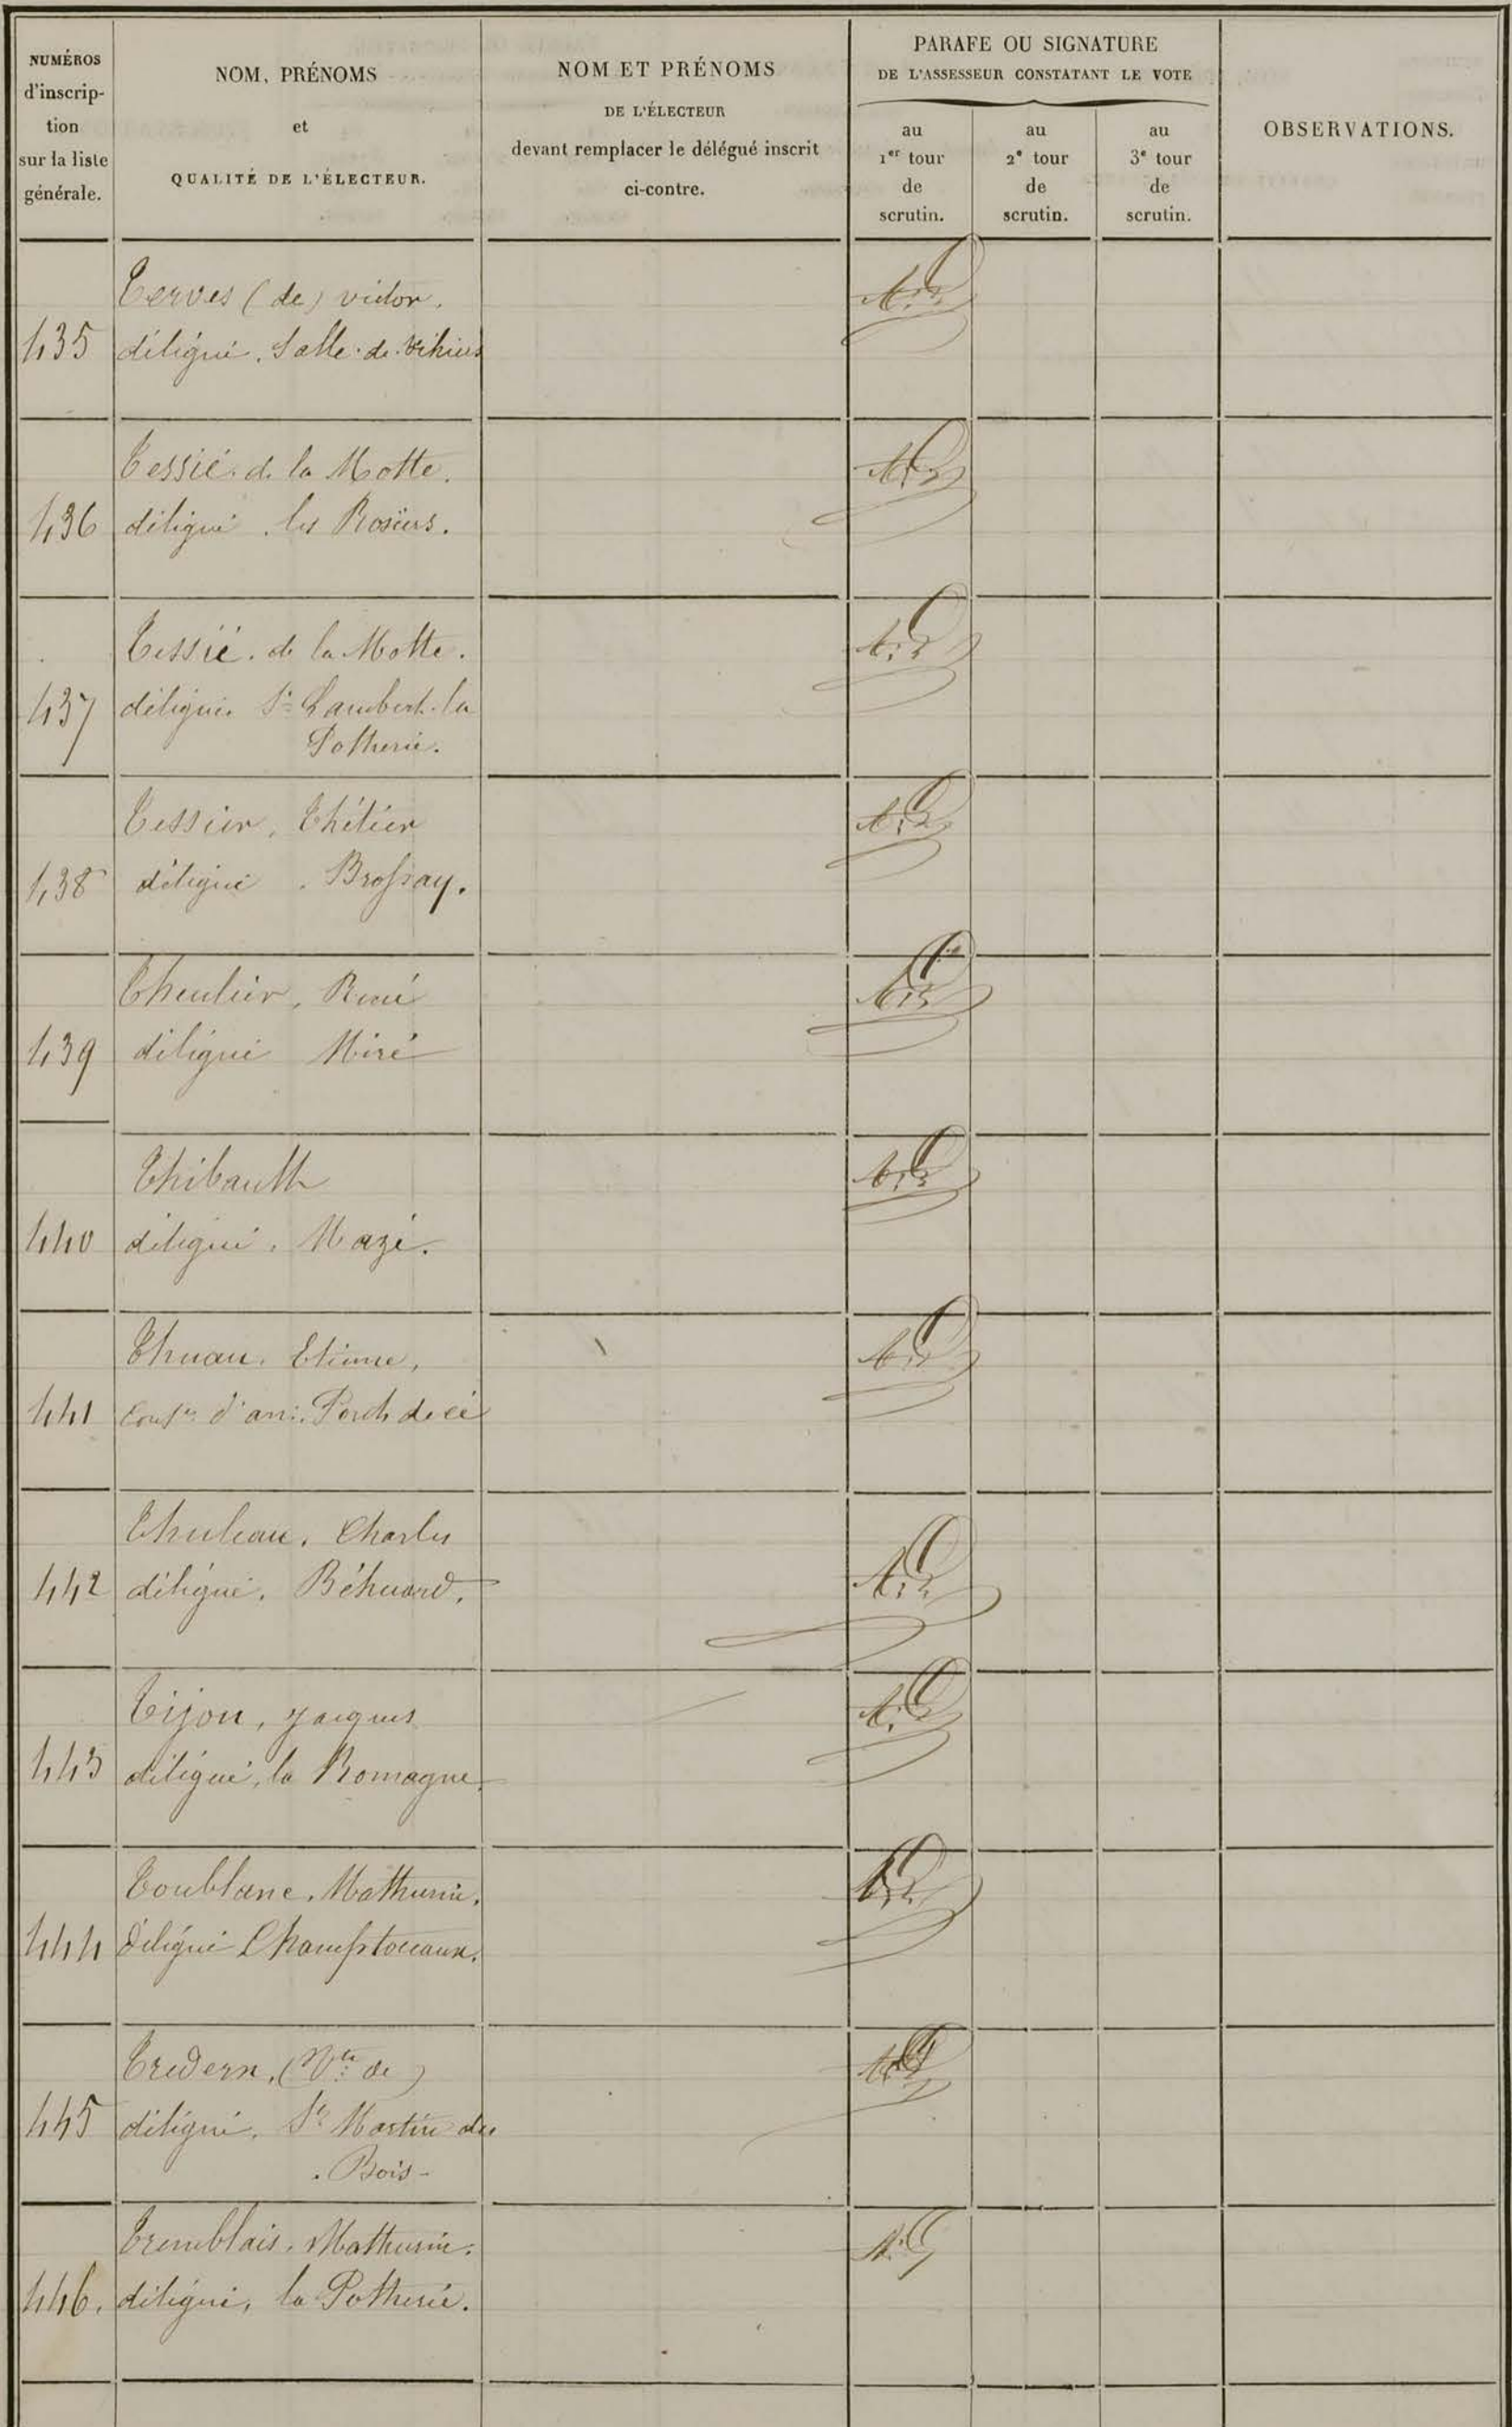 NUMÉROS
d'inscrip-
tion
sur la liste
générale.
NOM, PRÉNOMS
et
QUALITÉ DE L'ÉLECTEUR.
NOM ET PRÉNOMS
DE L'ÉLECTEUR
devant remplacer le délégué inscrit
ci-contre.
PARAFE OU SIGNATURE
DE L'ASSESSEUR CONSTATANT LE VOTE
au
1er tour
de
scrutin.
au
2e tour
de
scrutin.
au
3e tour
de
scrutin.
OBSERVATIONS.
Terves (de) victor.
435 délégué. Salle. de. Vihiers
Tessié. de la Motte.
436 délégué. les Rosiers.
Tessié. de la Motte.
437 délégué. St Lambert. la
Potherie.
Tessier,
438 délégué. Brossay.
Theulier, René
439 délégué Miré
Thibault
440 délégué. Mazé.
Thuau. Etienne,
441 Conser d'arr. Ponts de cé
Thuleau. Charles
442 délégué. Béhuard.
Tijou, Jacques
443 délégué, la Romagne.
Toublanc. Mathurin.
444 délégué Champtoceaux.
Tredern. (Vte de)
445 délégué. St Martin du
Bois -
Tremblais. Mathurin.
446. délégué, la Potherie.